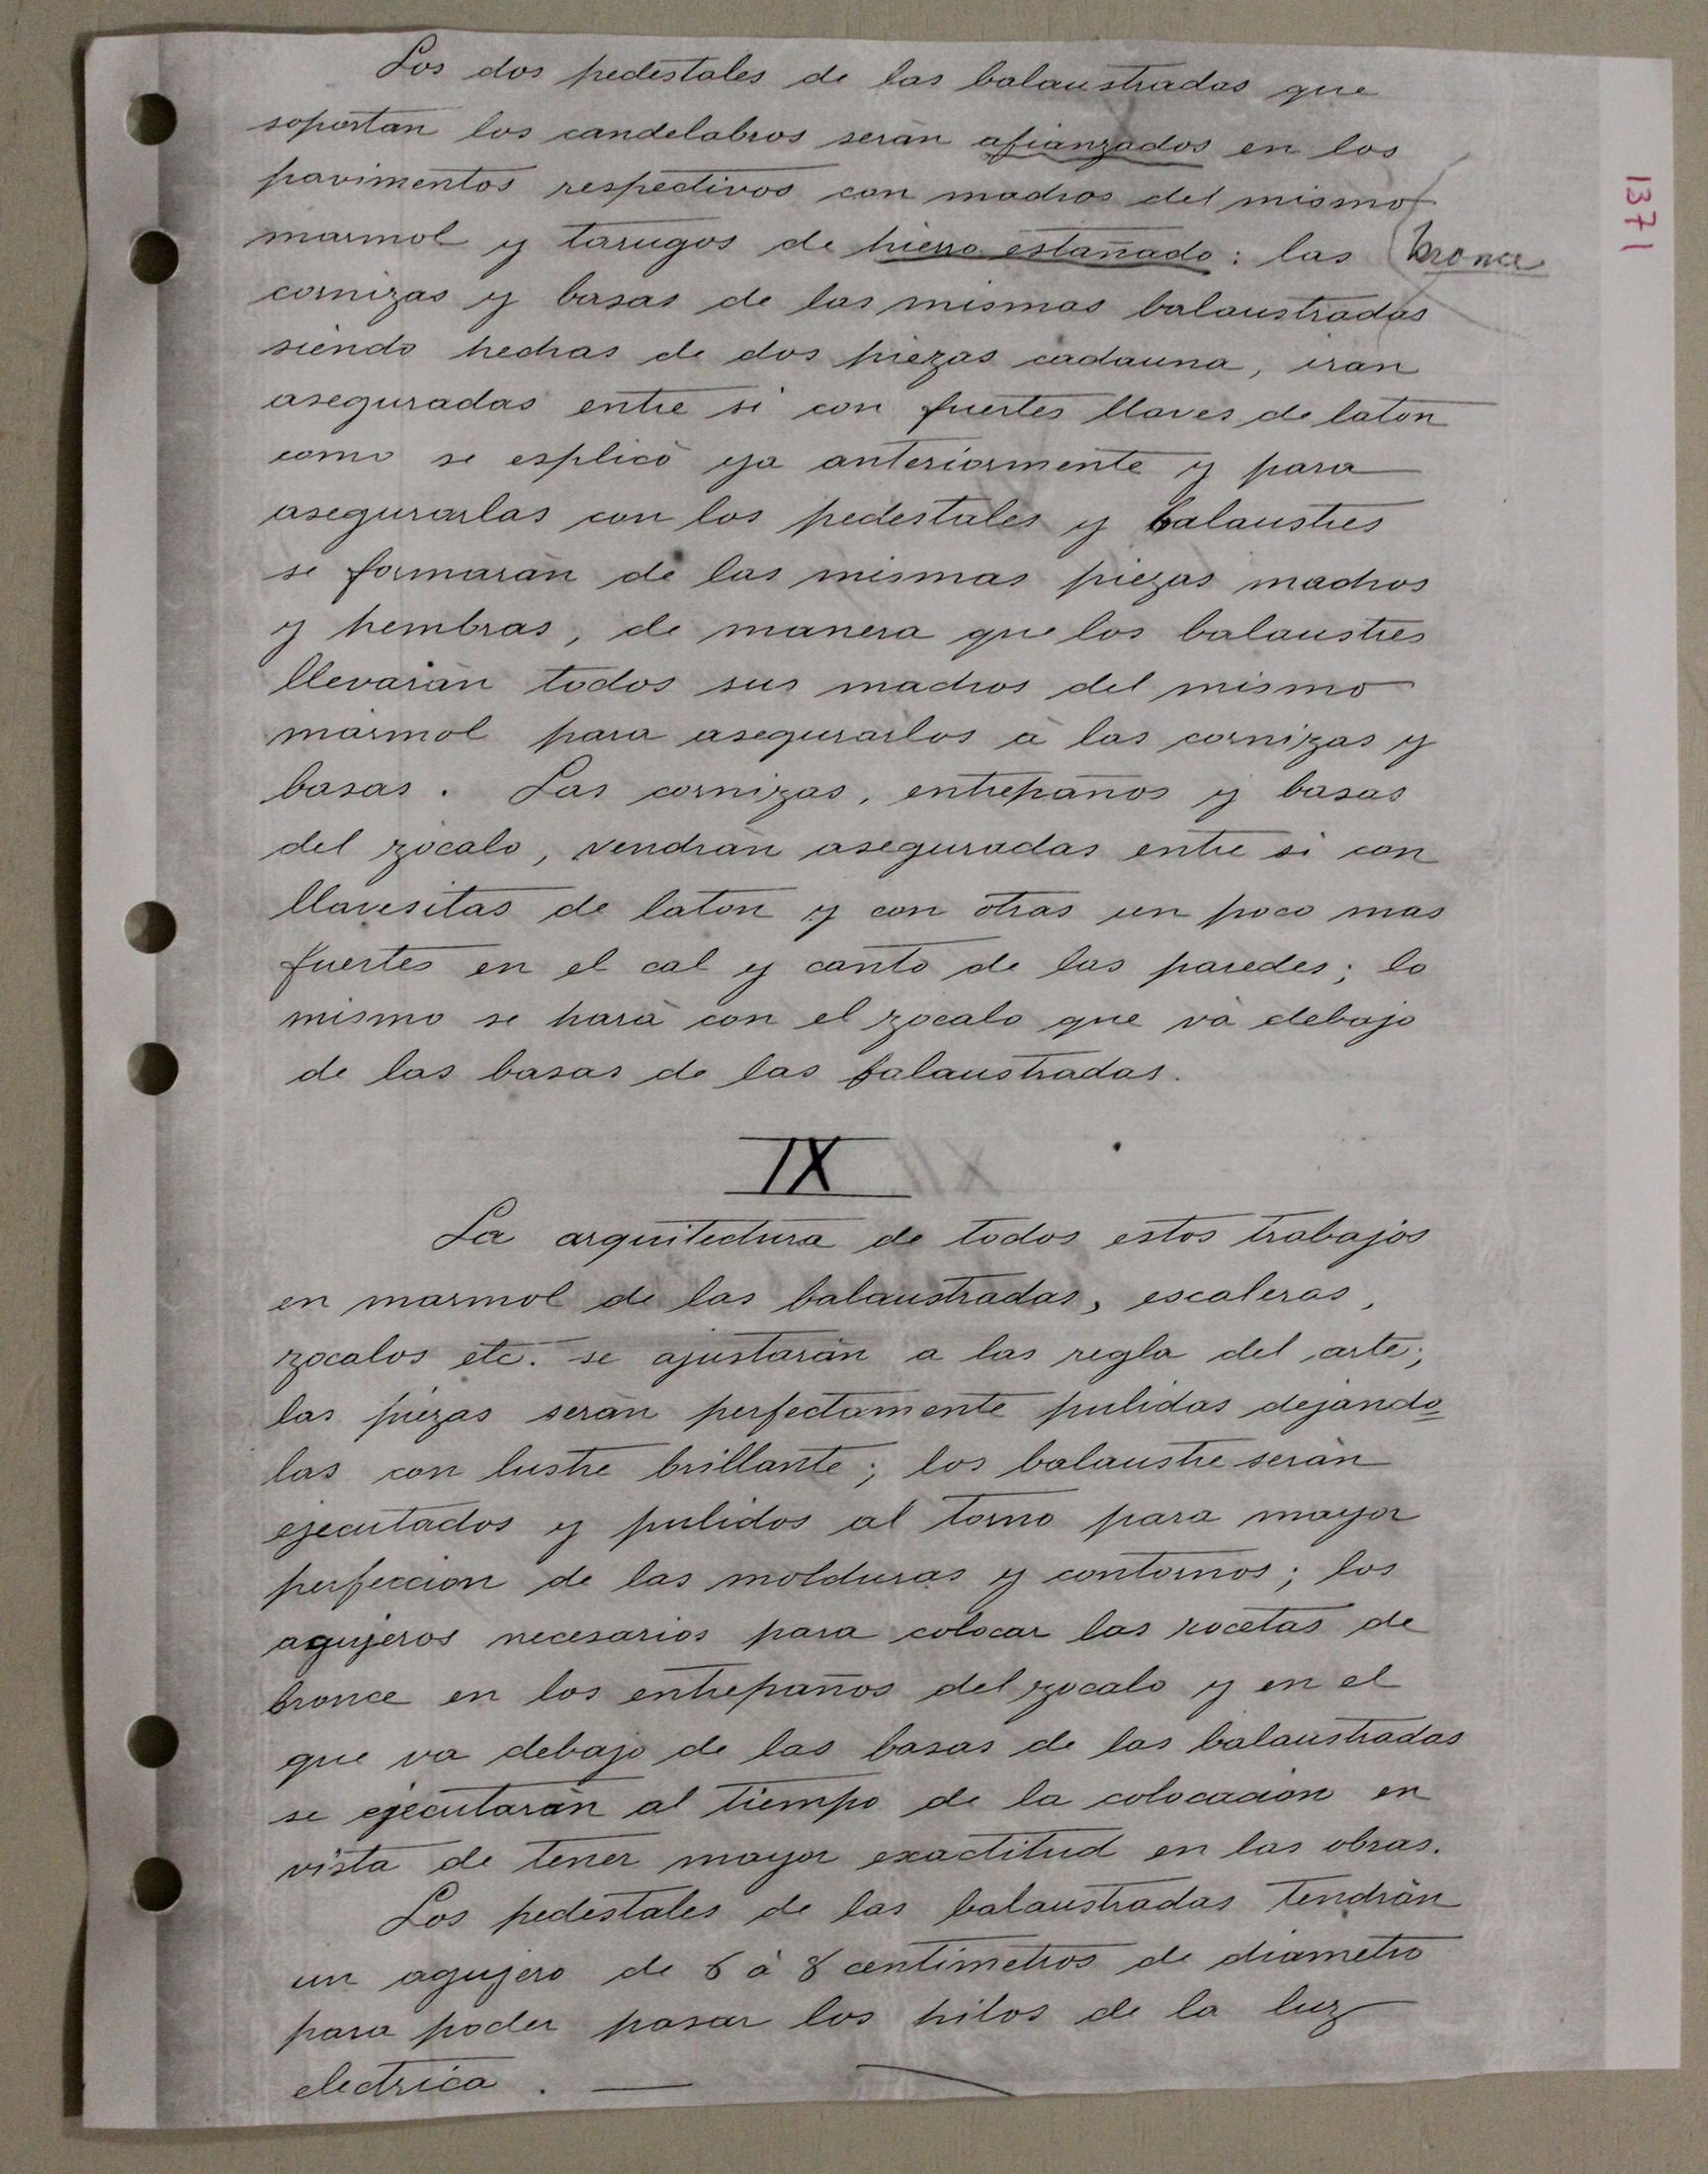 Los dos pedestales de las balaustradas que
soportan los candelabros seràn afianzados en los
pavimentos respectivos con machos del mismo
marmol y tarugos de hierro estañado: las bronce
cornizas y basas de las mismas balaustradas
siendo hechas de dos piezas cadauna, iran
aseguradas entre si con fuertes llaves de laton
como se esplicò ya anteriormente y para
asegurarlas con los pedestales y balaustres
se formaràn de las mismas piezas machos
y hembras, de manera que los balaustres
llevaràn todos sus machos del mismo
màrmol para asegurarlos à las cornizas y
basas. Las cornizas, entrepaños y basas
del zòcalo, vendràn aseguradas entre si con
llavesitas de laton y con otras un poco mas
fuertes en el cal y canto de las paredes; lo
mismo se harà con el zocalo que và debajo
de las basas de las balaustradas.
IX
La arquitectura de todos estos trabajos
en marmol de las balaustradas, escaleras,
zocalos etc. se ajustaràn a las regla del arte;
las piezas seràn perfectamente pulidas dejando
las con lustre brillante; los balaustre seràn
ejecutados y pulidos al torno para mayor
perfeccion de las molduras y contornos; los
agujeros necesarios para colocar las rocetas de
bronce en los entrepaños del zocalo y en el
que va debajo de las basas de las balaustradas
se ejecutaràn al tiempo de la colocacion en
vista de tener mayor exactitud en las obras.
Los pedestales de las balaustradas tendràn
un agujero de 6 à 8 centimetros de diametro
para poder pasar los hilos de la luz
electrica.
1371